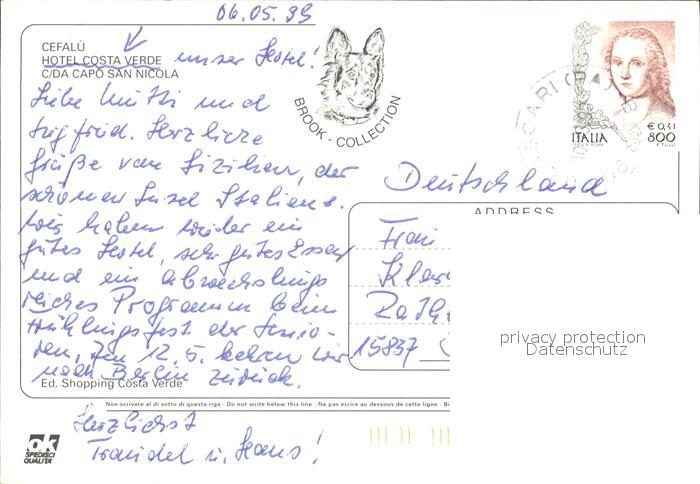 06.05.99
CEFALÙ
HOTEL COSTA VERDE unser Hotel!
C/DA CAPO SAN NICOLA
Liebe Mutti und
Siegfried. Herzliche
Grüße von Sizilien, der
schönen Insel Italiens.
Wir haben wieder ein
gutes Hotel, sehr gutes Essen
und ein abwechslungs
reiches Programm beim
Frühlingsfest der Senio-
ren, Am 12.5. kehren wir
nach Berlin zurück.
Ed. Shopping Costa Verde
Herzlichst
Traudel u. Hans!
BROOK - COLLECTION
ITALIA
€ 0,41
800
Deutschland
ADDRESS
Frau
15837
Non scrivere al di sotto di questa riga - Do not write below this line - Ne pas ecrire au dessous de cette ligne - Bi
ok
SPEDISCI
QUALITA'
privacy protection
Datenschutz